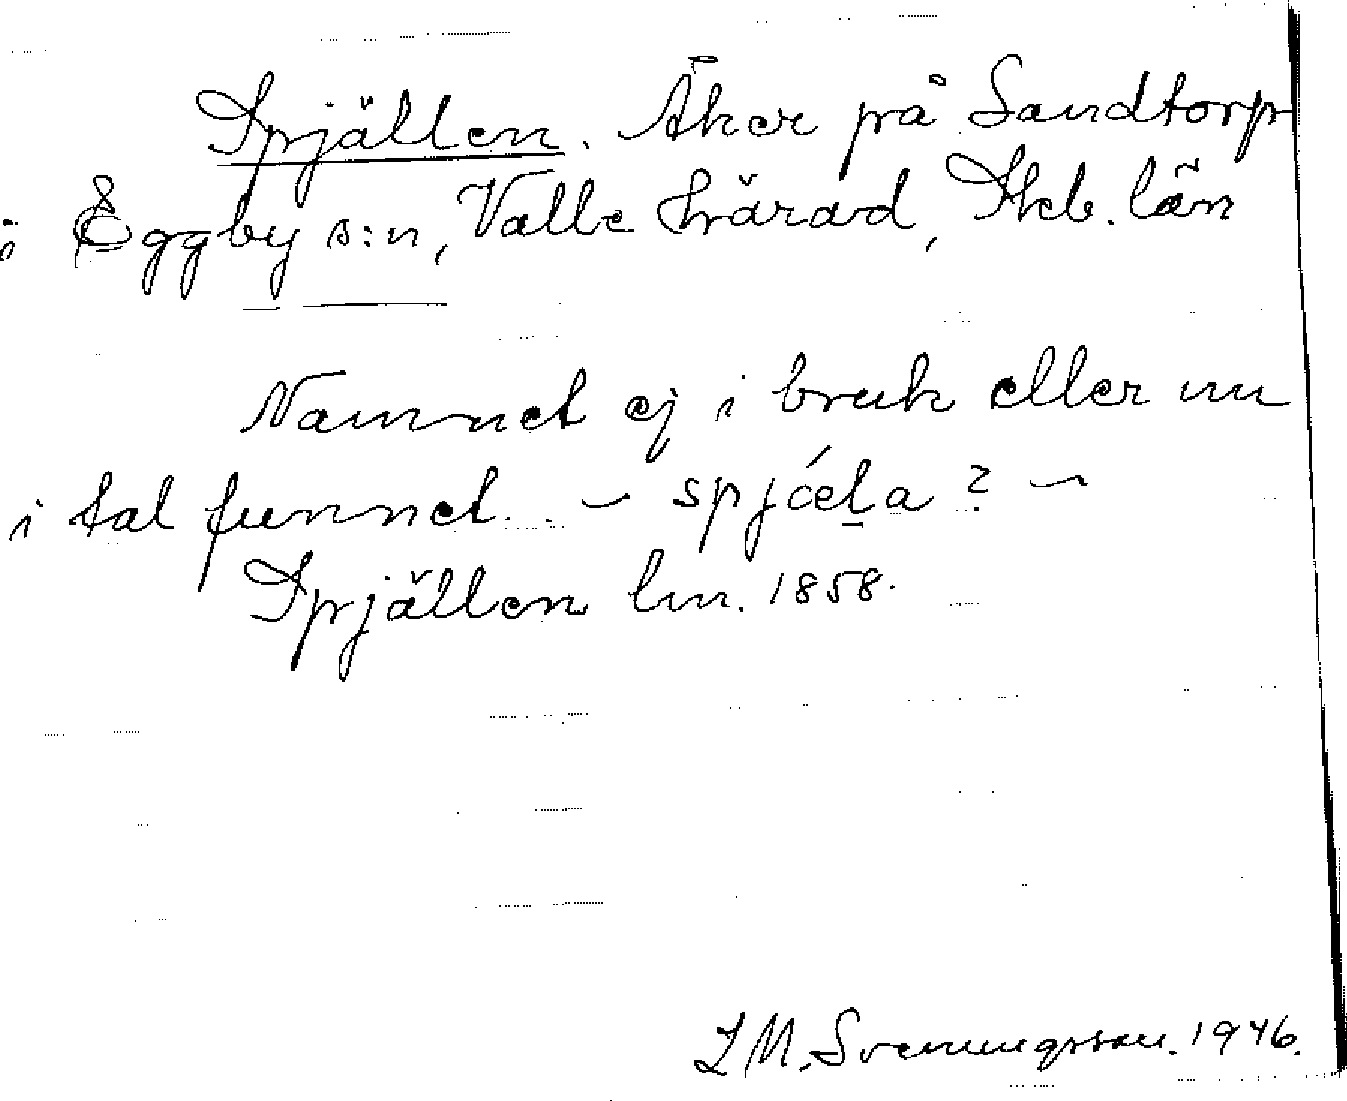 Spjällen. Åker på Sandtorp
i Eggby s:n, Valle härad, Skb. län
Namnet ej i bruk eller nu
i tal funnet. – spjǽḷa? –
Spjällen lm. 1858.
L M. Svenungsson. 1946.